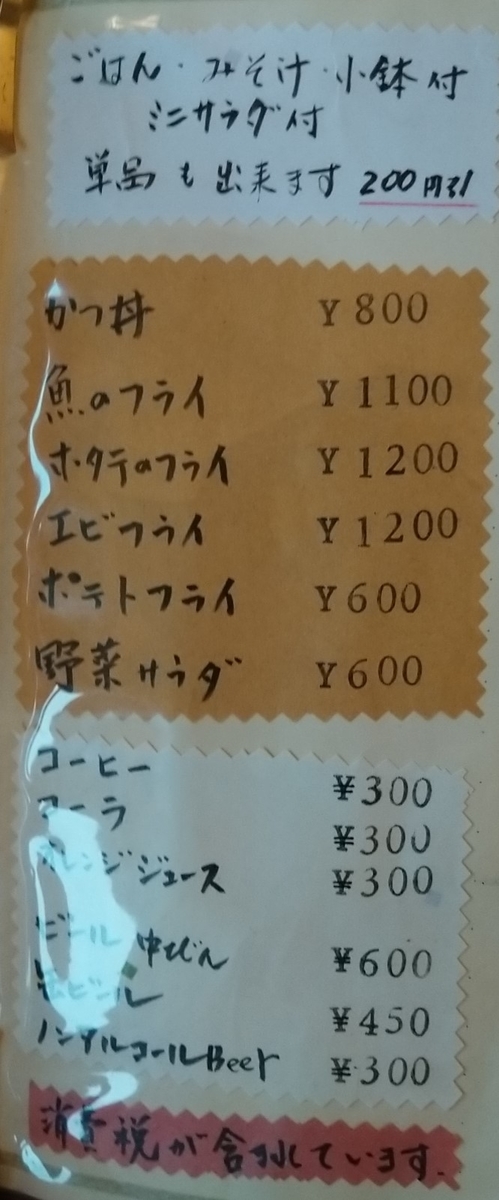 ごはん・みそ汁・小鉢付
ミニサラダ付
単品も出来ます 200円引
かつ丼 ¥800
魚のフライ ¥1100
ホタテのフライ ¥1200
エビフライ ¥1200
ポテトフライ ¥600
野菜サラダ ¥600
コーヒー ¥300
コーラ ¥300
オレンジジュース ¥300
ビール 中びん ¥600
缶ビール ¥450
ノンアルコールBeer ¥300
消費税が含まれています.